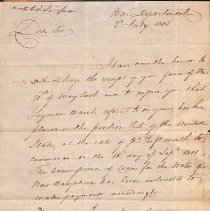 War Department
2d July 1802.
Dear Sir
I have now the honor to
acknowledge the receipt of your favor of the
31st of May last and to inform you that
Seymour March referred to in yours has been
placed on the pension list of the United
States, at the rate of month to
commence on the day of Sept. 1801.
The Commissioner of loans for the State of
New Hampshire has been instructed to
make payment accordingly.